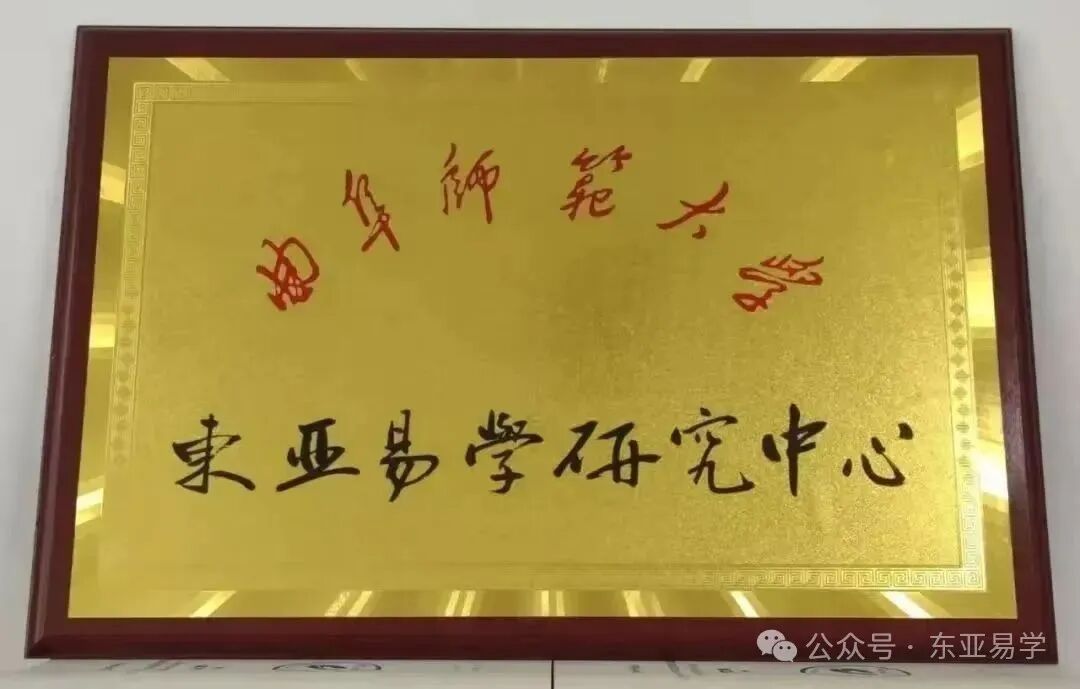 曲阜師範大學
東亚易學研究中心
公众号 · 东亚易学